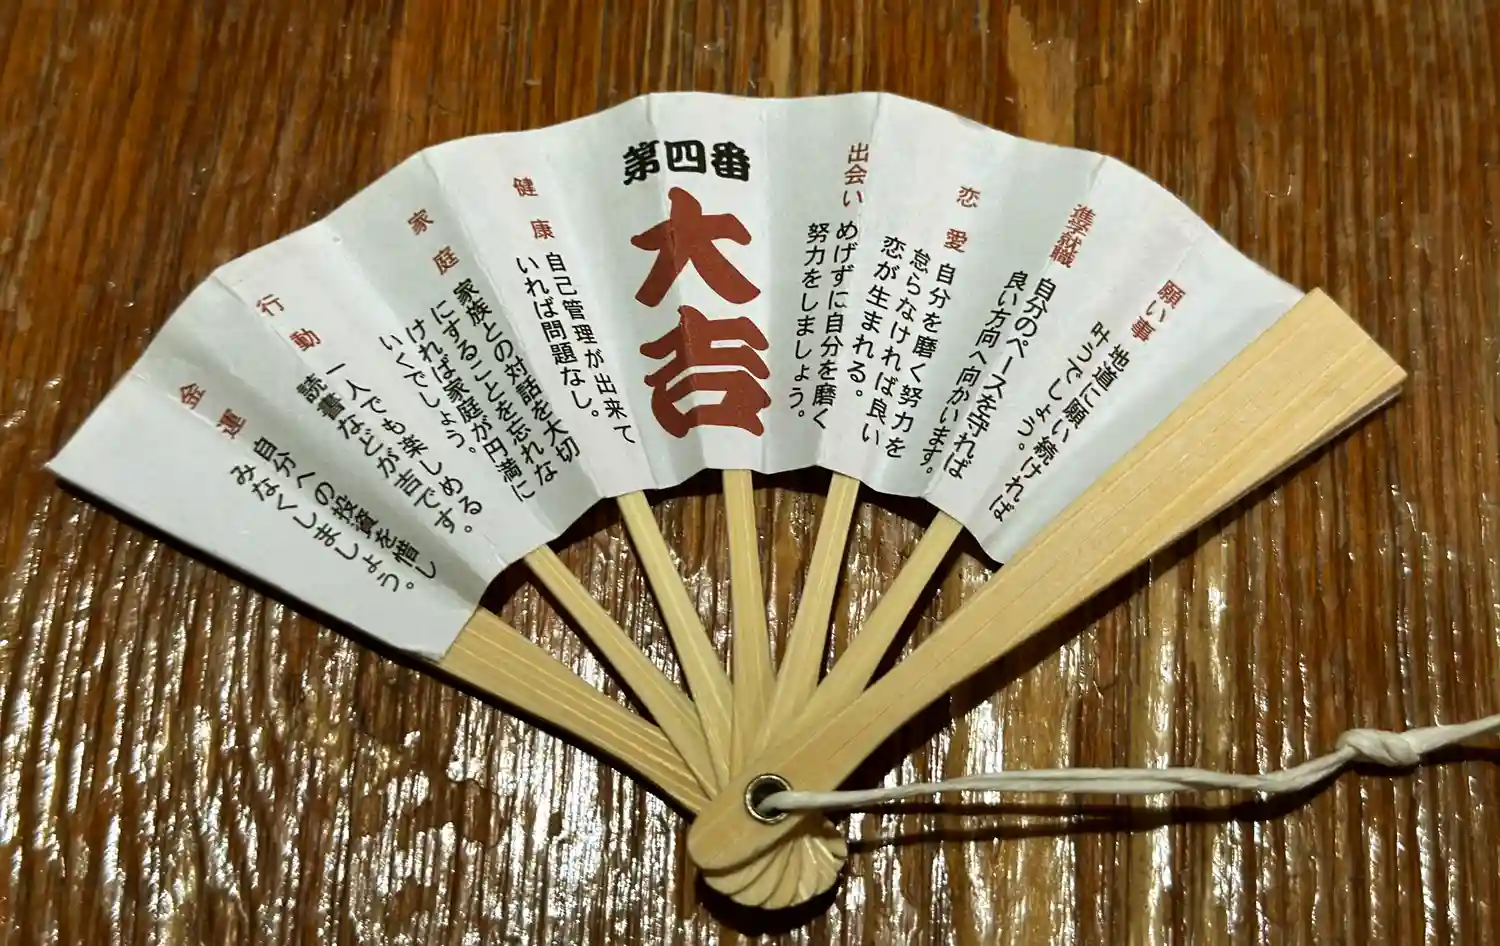 願い事
地道に願い続ければ
叶うでしょう。
進学就職
自分のペースを守れば
良い方向へ向かいます。
恋愛
自分を磨く努力を
怠らなければ良い
恋が生まれる。
出会い
めげずに自分を磨く
努力をしましょう。
第四番
大吉
健康
自己管理が出来て
いれば問題なし。
家庭
家族との対話を大切
にすることを忘れな
ければ家庭が円満に
いくでしょう。
行動
一人でも楽しめる
読書などが吉です。
金運
自分への投資を惜し
みなくしましょう。